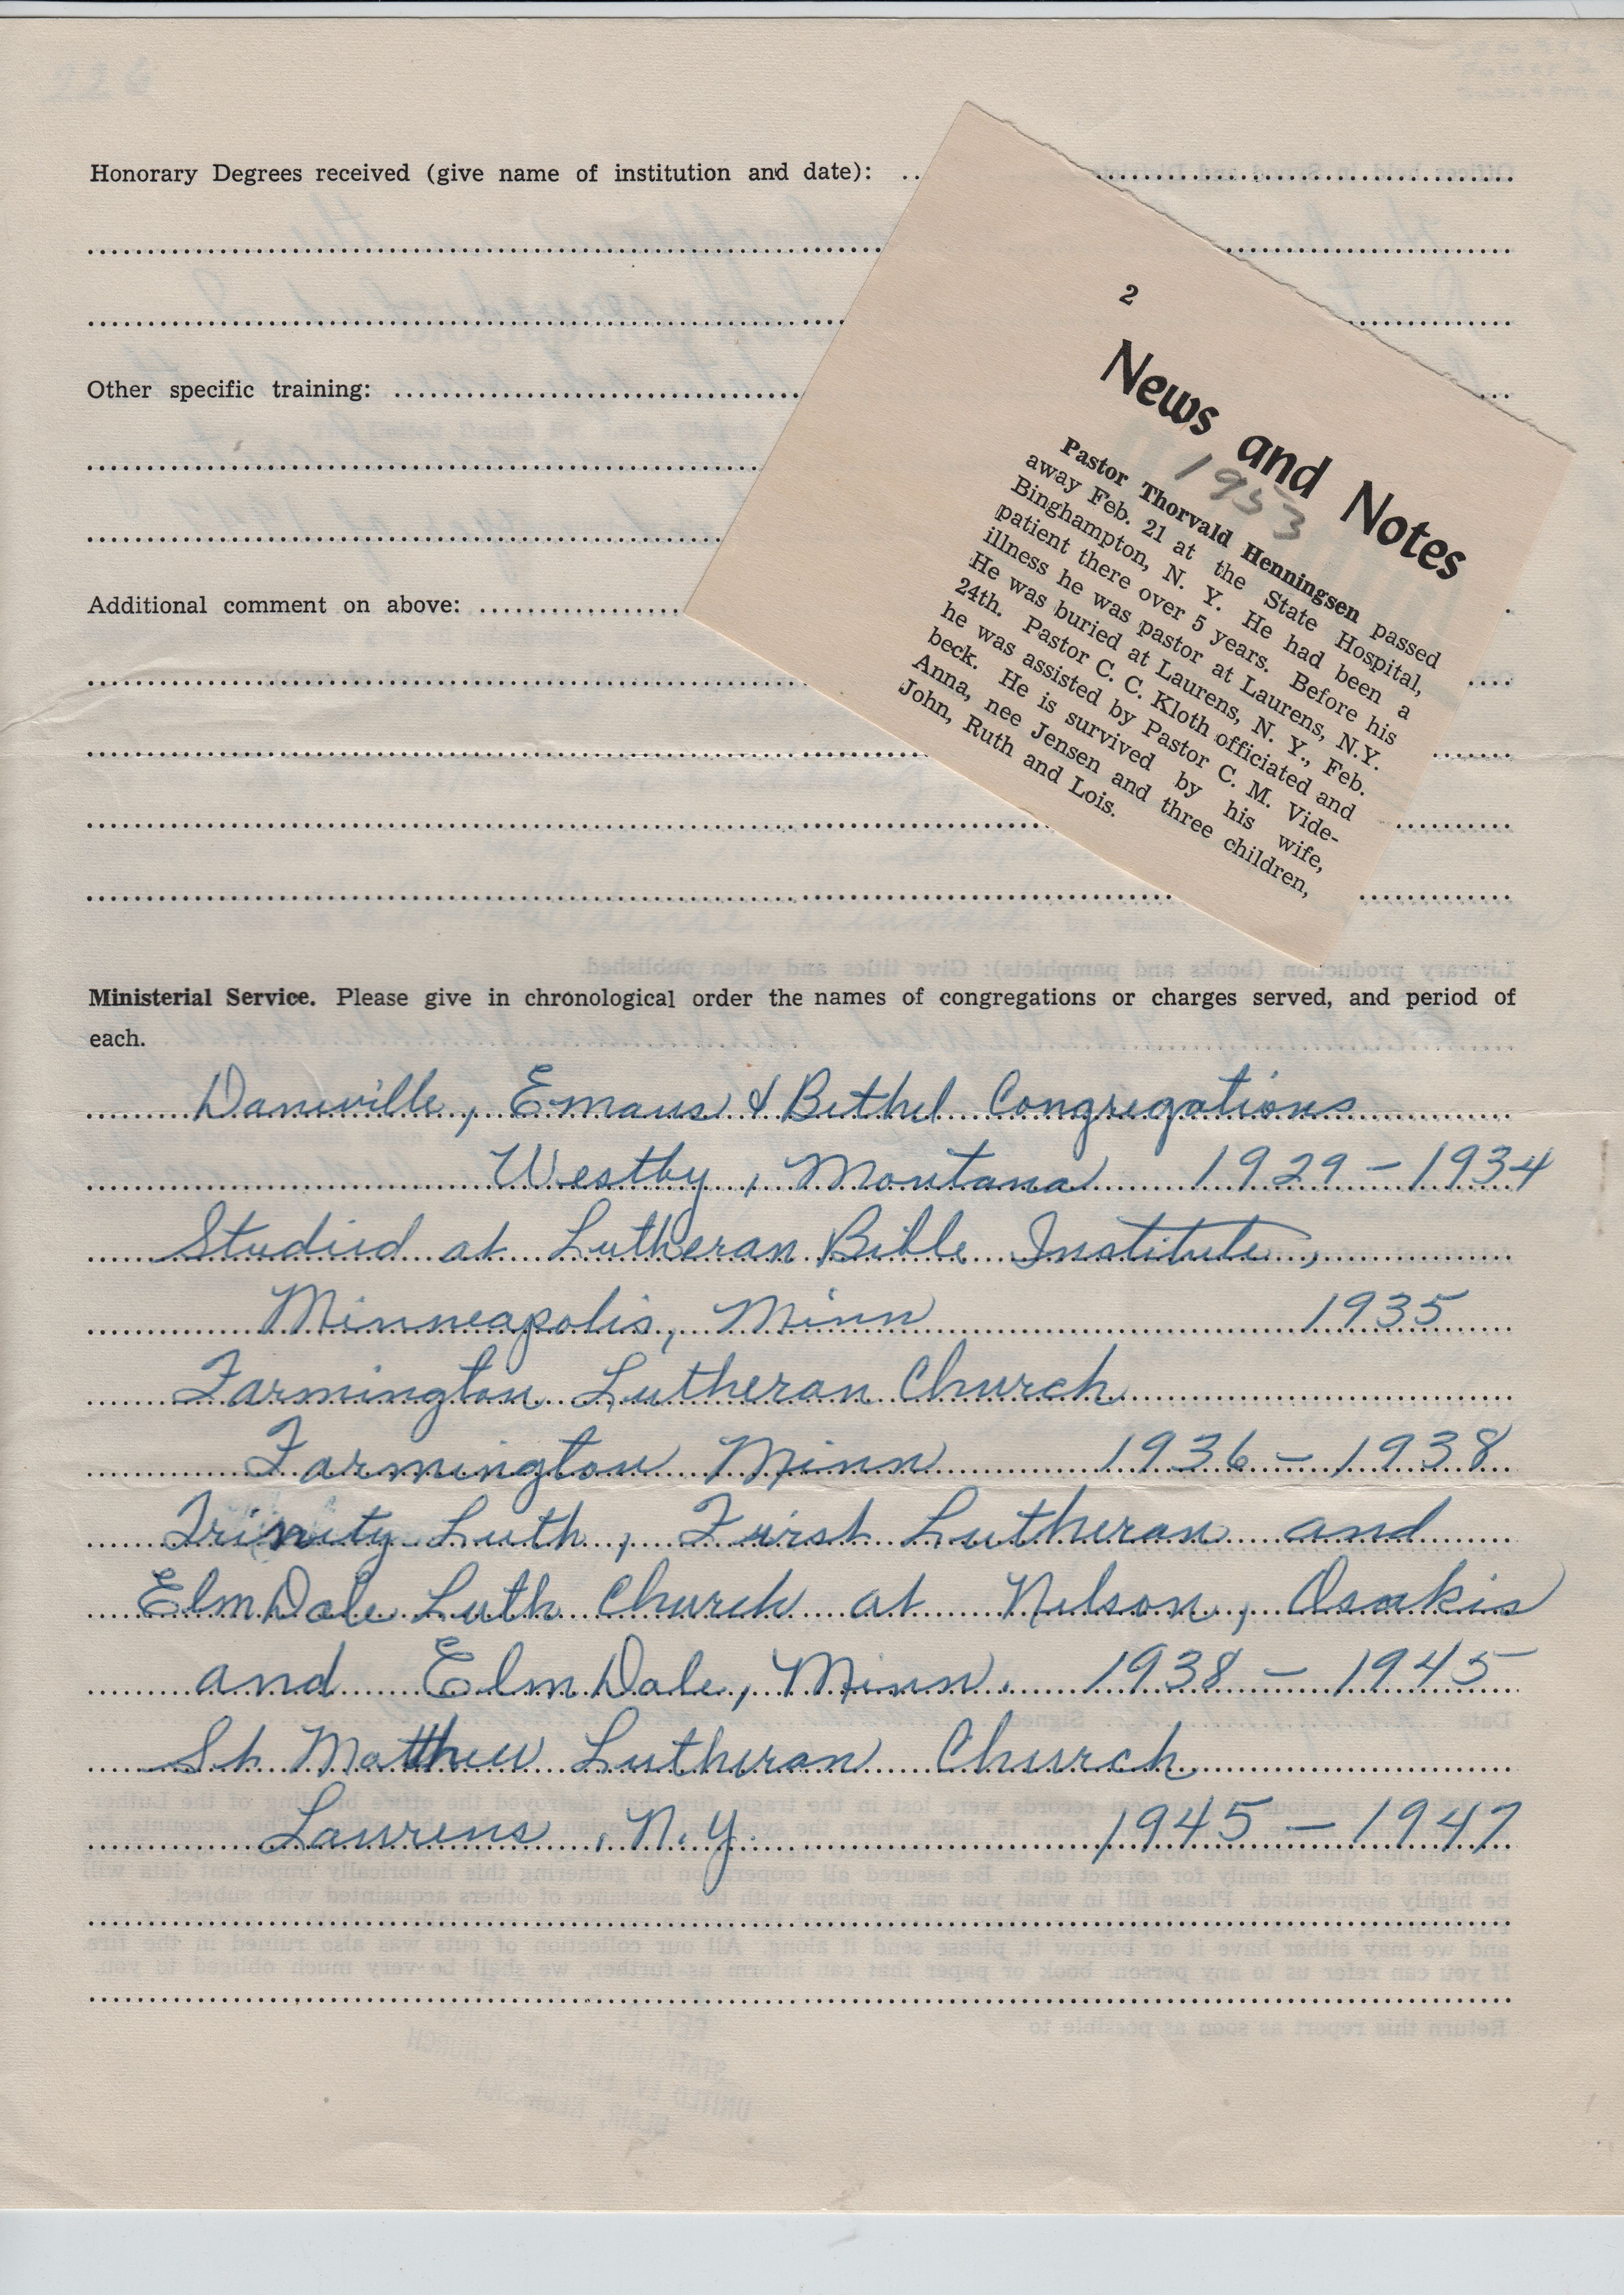 Honorary Degrees received (give name of institution and date):
Other specific training:
Additional comment on above:
2
News and Notes
1953
Pastor Thorvald Henningsen passed
away Feb. 21 at the State Hospital,
Binghampton, N. Y. He had been a
patient there over 5 years. Before his
illness he was pastor at Laurens, N.Y.
He was buried at Laurens, N. Y., Feb.
24th. Pastor C. C. Kloth officiated and
he was assisted by Pastor C. M. Vide-
beck. He is survived by his wife,
Anna, nee Jensen and three children,
John, Ruth and Lois.
Ministerial Service. Please give in chronological order the names of congregations or charges served, and period of
each.
Daneville, Emaus & Bethel Congregations
Westby, Montana 1929 - 1934
Studied at Lutheran Bible Institute,
Minneapolis, Minn 1935
Farmington Lutheran Church
Farmington Minn 1936 - 1938
Trinity Luth, First Lutheran and
ElmDale Luth Church at Nelson, Osakis
and ElmDale, Minn. 1938 - 1945
St Matthew Lutheran Church
Laurens, N.Y. 1945 - 1947